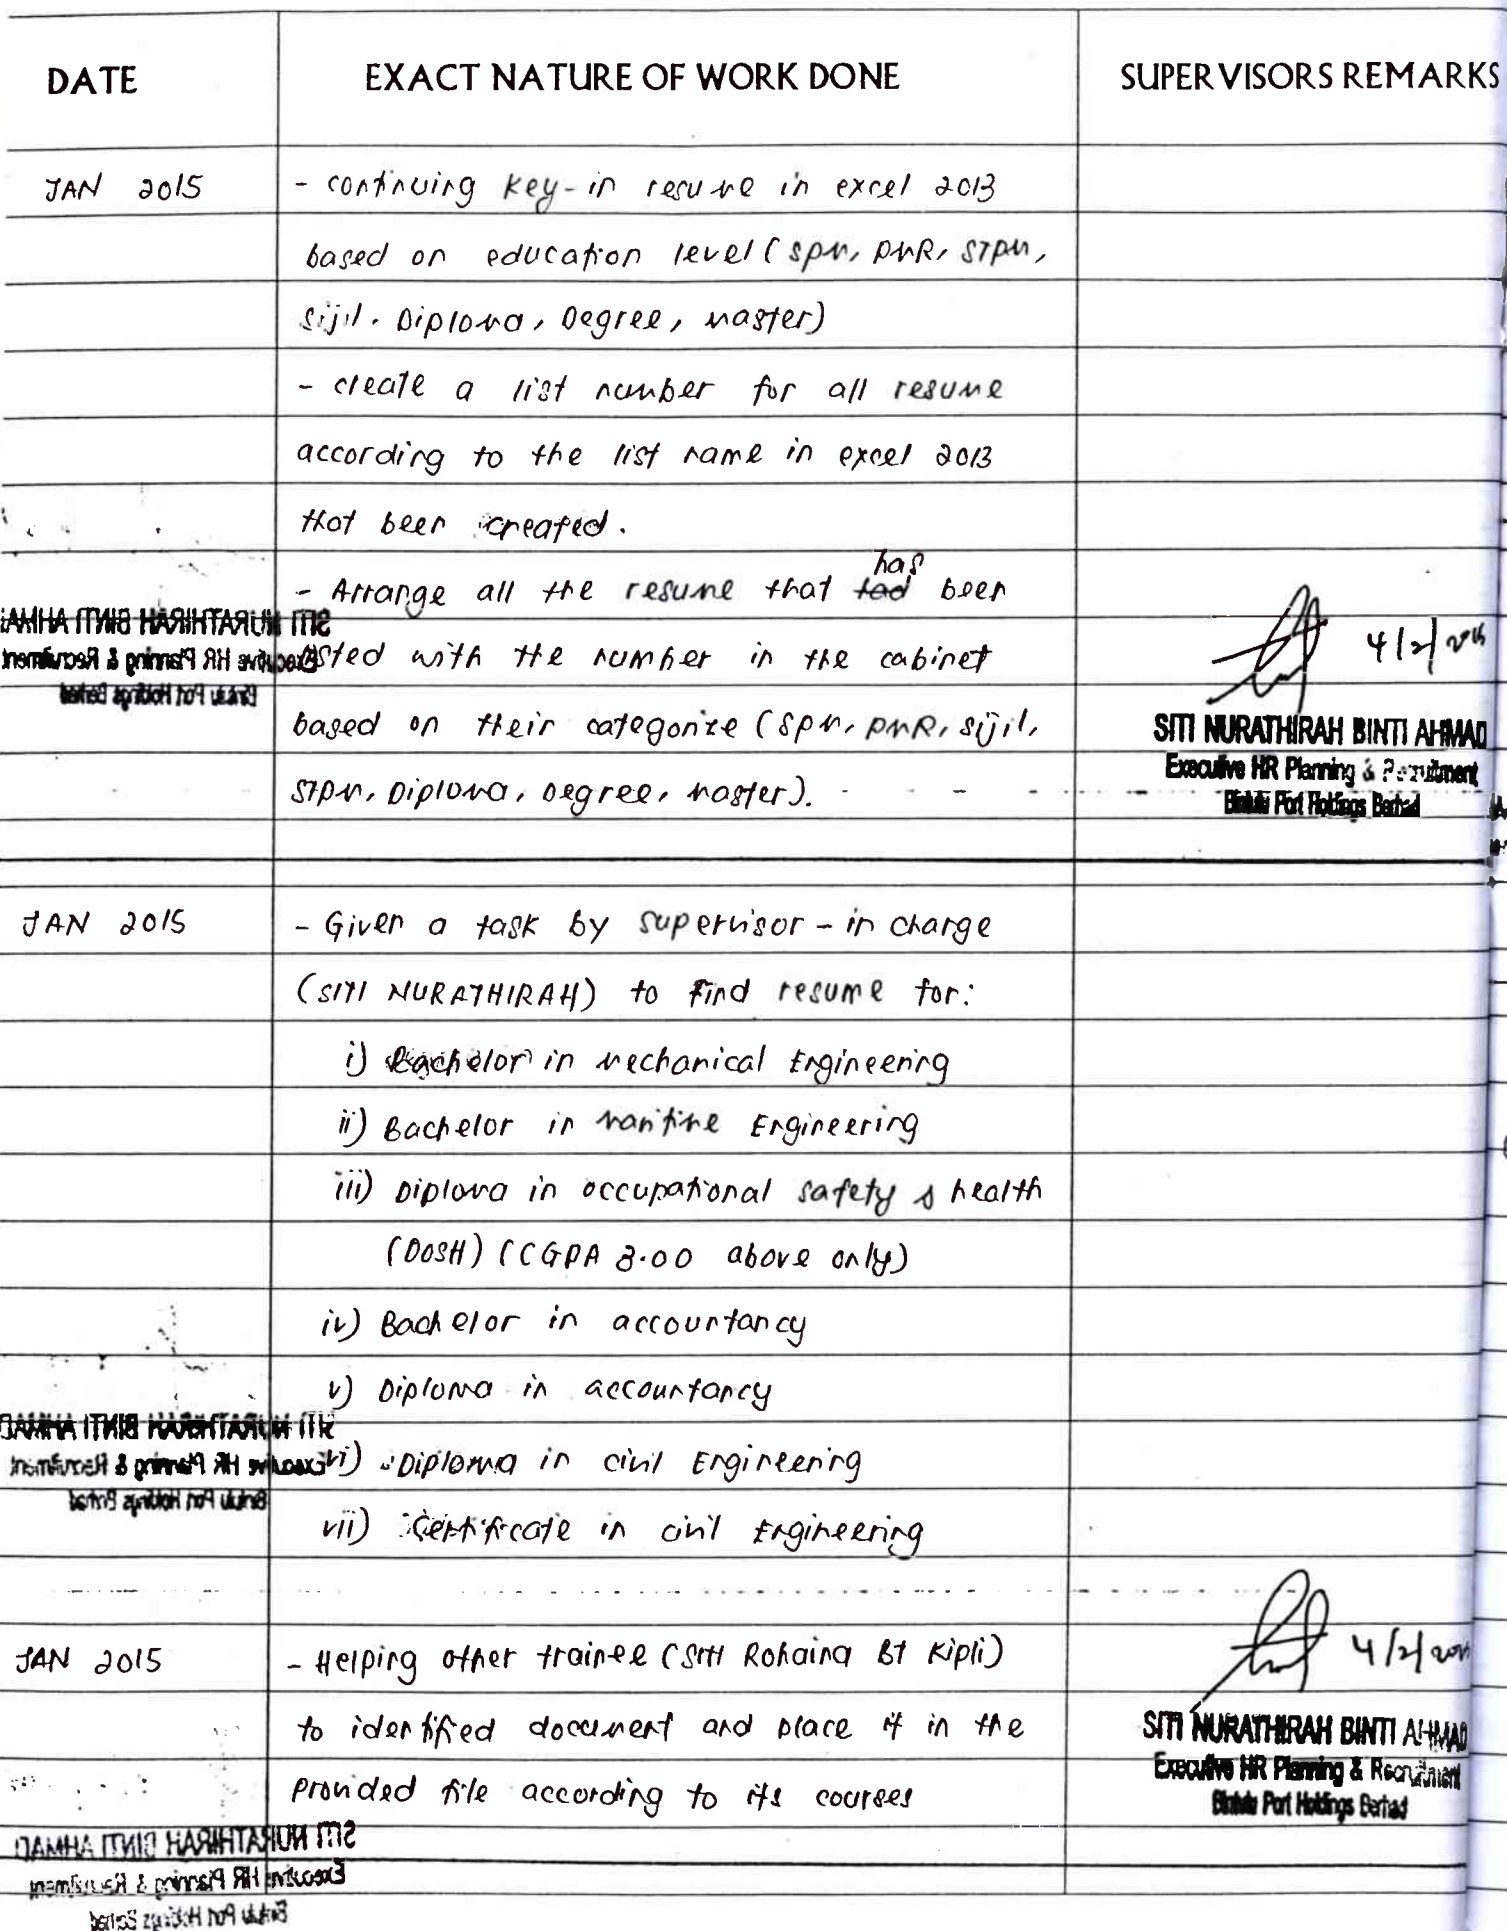 DATE EXACT NATURE OF WORK DONE SUPERVISORS REMARKS
JAN 2015 - continuing key-in resume in excel 2013
based on education level (SPM, PMR, STPM,
Sijil. Diploma, Degree, Master)
- create a list number for all resume
according to the list name in excel 2013
that been created.
has
- Arrange all the resume that had been
listed with the number in the cabinet
4/2/2015
based on their categorize (SPM, PMR, sijil,
STPM, Diploma, Degree, Master).
SITI NURATHIRAH BINTI AHMAD
Executive HR Planning & Recruitment
Bintulu Port Holdings Berhad
JAN 2015 - Given a task by supervisor - in charge
(SITI NURATHIRAH) to find resume for:
i) Bachelor in Mechanical Engineering
ii) Bachelor in Maritime Engineering
iii) Diploma in occupational safety & health
(DOSH) (CGPA 3.00 above only)
iv) Bachelor in accountancy
v) Diploma in accountancy
vi) Diploma in civil Engineering
vii) Certificate in civil Engineering
JAN 2015 - Helping other trainee (Siti Rohaina Bt Kipli)
4/2/2015
to identified document and place it in the
provided file according to its courses
SITI NURATHIRAH BINTI AHMAD
Executive HR Planning & Recruitment
Bintulu Port Holdings Berhad